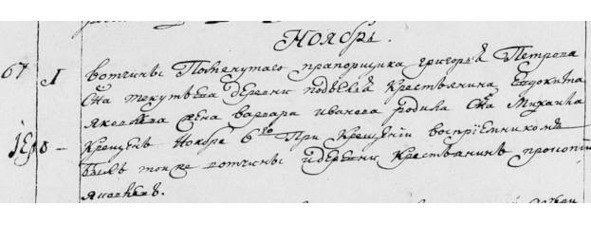 Ноябрь.
67 1 вотчины Помянутаго прапорщика григорья Петрова
Сна текутьева деревни крестьянина Евдокима
Яковлева жена варвара иванова родила сна Михаила
Крещенъ Ноября 6го При Крещенiи воспрiемникомъ
былъ тоя же вотчины и деревни крестьянинъ
Яковлевъ.